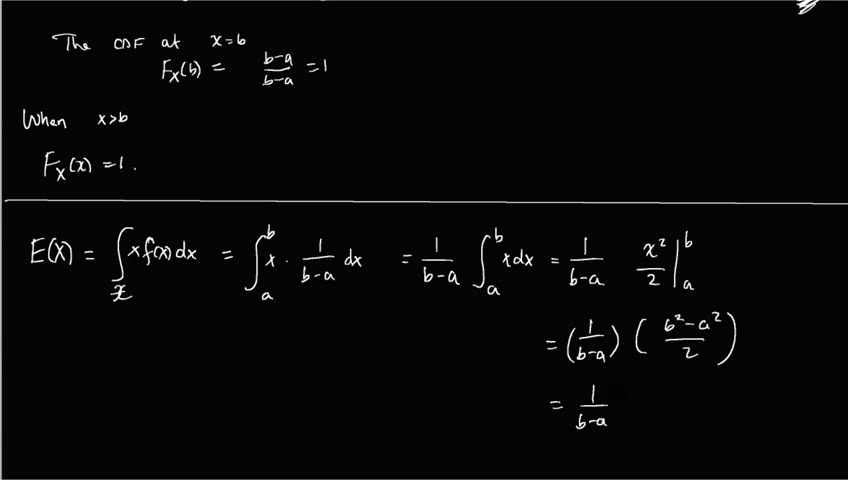 The CDF at x=b
F_X(b) = \frac{b-a}{b-a} = 1
When x>b
F_X(x) = 1.
E(X) = \int_{\mathcal{X}} x f(x) dx = \int_a^b x \cdot \frac{1}{b-a} dx = \frac{1}{b-a} \int_a^b x dx = \frac{1}{b-a} \frac{x^2}{2} |_a^b
= (\frac{1}{b-a}) (\frac{b^2-a^2}{2})
= \frac{1}{b-a}